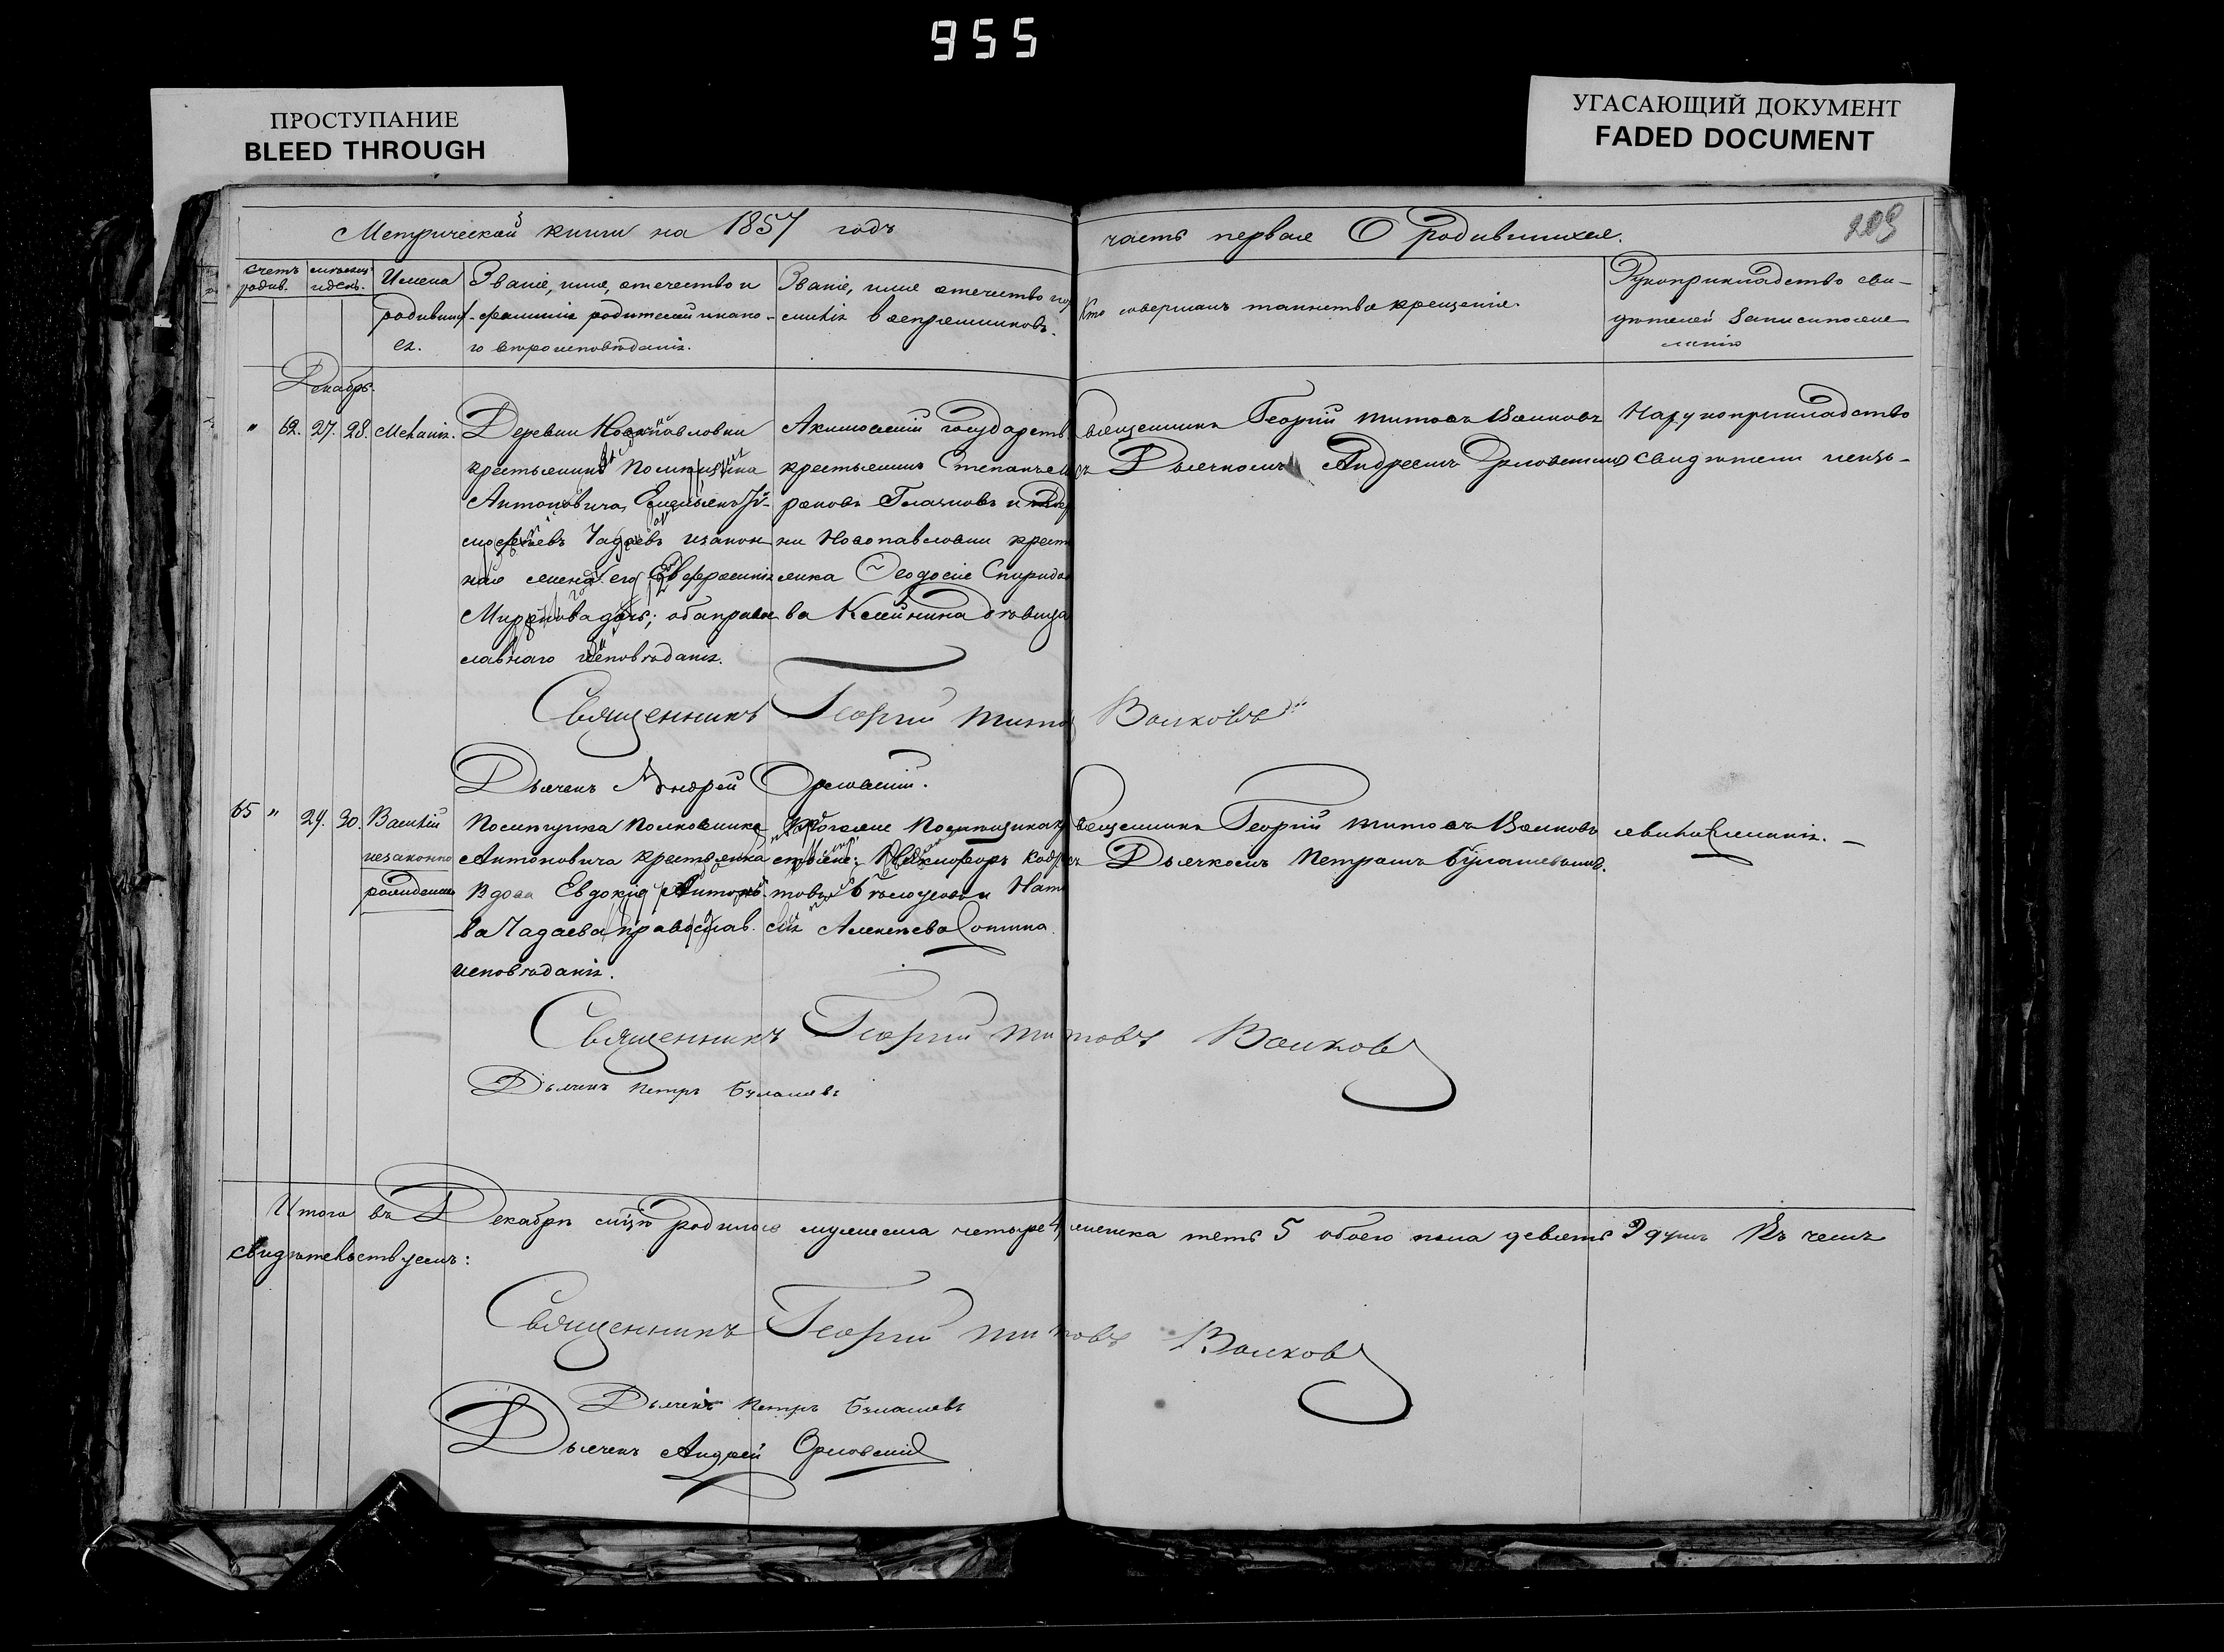 955
ПРОСТУПАНИЕ
BLEED THROUGH
УГАСАЮЩИЙ ДОКУМЕНТ
FADED DOCUMENT
Метрической книги на 1857 годъ
часть первая О родившихся.
209
Счетъ родив.
мѣсяцъ и день.
Имена родившихся.
Званіе, имя, отечество и
фамилія родителей и како-
го вѣроисповѣданія.
Званіе, имя отечество и
фамилія воспріемниковъ.
Кто совершалъ таинство крещенія.
Рукоприкладство сви-
дѣтелей записи по же-
ланію
Декабрь.
" 62. 27. 28. Меланія.
Деревни Новопавловки
крестьянинъ Помѣщика
Антоновича, Емельянъ
Чадаевъ и закон-
ная жена его Евфросинія
Миронова дочь; оба право-
славнаго исповѣданія.
государств
крестьянинъ Степанъ
и
ки Новопавловки крест
янка Ѳеодосія Спиридо
ва дѣвица
Священникъ Георгій Титовъ Волковъ
съ Дьячкомъ Андреемъ Орловскимъ
На рукоприкладство
свидѣтели неизъ-
Священникъ Георгій Титовъ Волковъ
Дьячекъ Андрей Орловскій.
65 " 29. 30. Василій
незаконно
рожденный
Помѣщика Полковника
Антоновича крестьянка
вдова Евдокія Антоно-
ва Чадаева православ.
исповѣданія.
Помѣщика
Никифоръ
и Ната
лія Алексѣева
Священникъ Георгій Титовъ Волковъ
съ Дьячкомъ Петромъ Булашевымъ.
явили желанія.
Священникъ Георгій Титовъ Волковъ
Дьячекъ Петръ Булашевъ
Итого въ Декабрѣ мѣсяцѣ родилось мужеска четыре 4, женска пять 5 обоего пола девять 9 душъ Въ чемъ
свидѣтельствуемъ:
Священникъ Георгій Титовъ Волковъ
Дьячекъ Петръ Булашевъ
Дьячекъ Андрей Орловскій